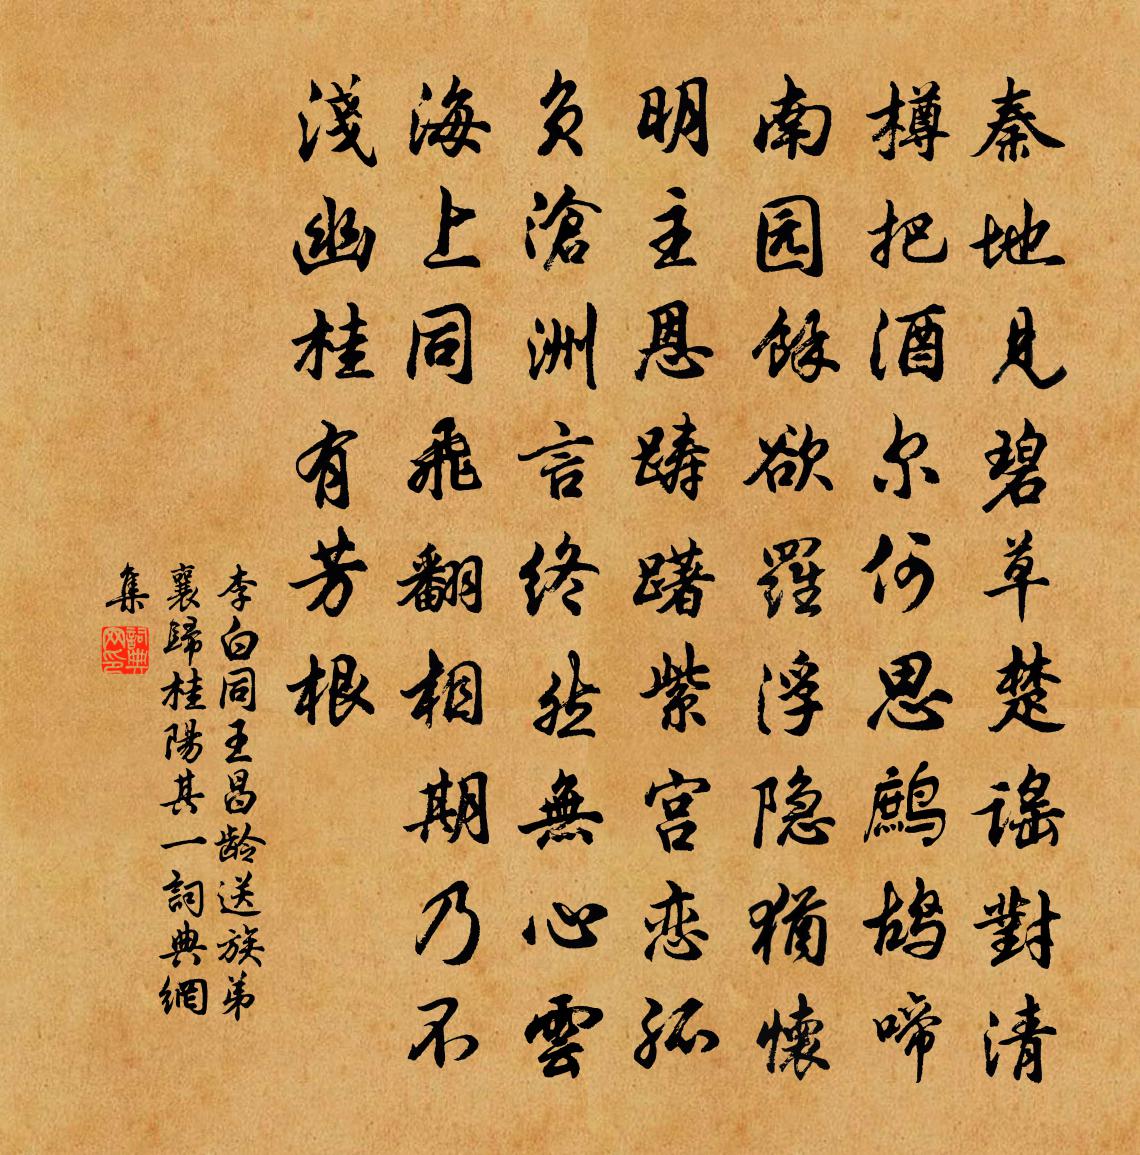 秦地見碧草楚謠對清
樽把酒尔何思鷓鴣啼
南园餘欲羅浮隐猶懷
明主恩躊躇紫宮恋孤
负滄洲言终然無心雲
海上同飛翻相期乃不
淺幽桂有芳根
李白同王昌龄送族弟
襄歸桂陽其一詞典網
集
詞典网印